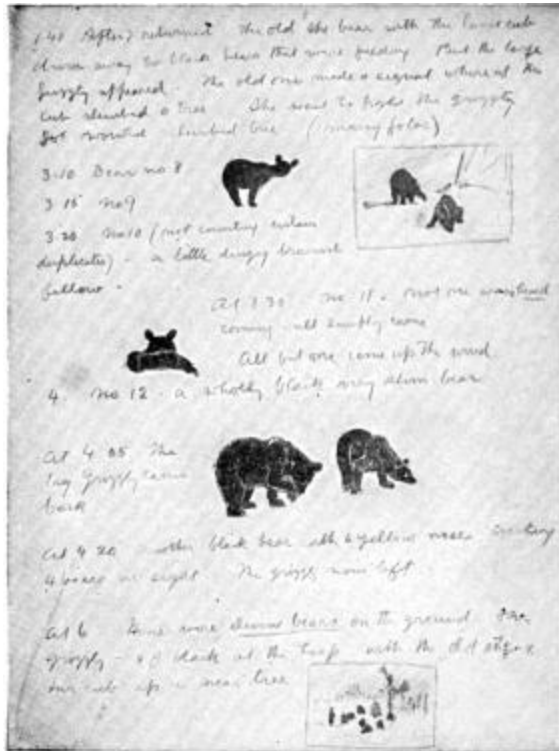 1.40 After I returned the old she bear with the lame cub
drove away two black bears that were feeding But the large
grizzly appeared. The old one made a signal whereat the
cub climbed a tree She went to fight the grizzly
tree (many fotos)
3.10 Bear no 8
3.15 no 9
3.20 No 10 (not counting certain
duplicates) - a little dingy brownish
fellow -
At 3.30 no 11. not one was heard
coming all simply came
All but one came up the wind
4. no 12 - a wholly black very slim bear
At 4.05 The
big grizzly came
back
At 4.20 another black bear with a yellow nose
4 bears in sight The grizzly now left
At 6 there were eleven bears on the ground. The
grizzly - & black at the with the old
cub up a near tree